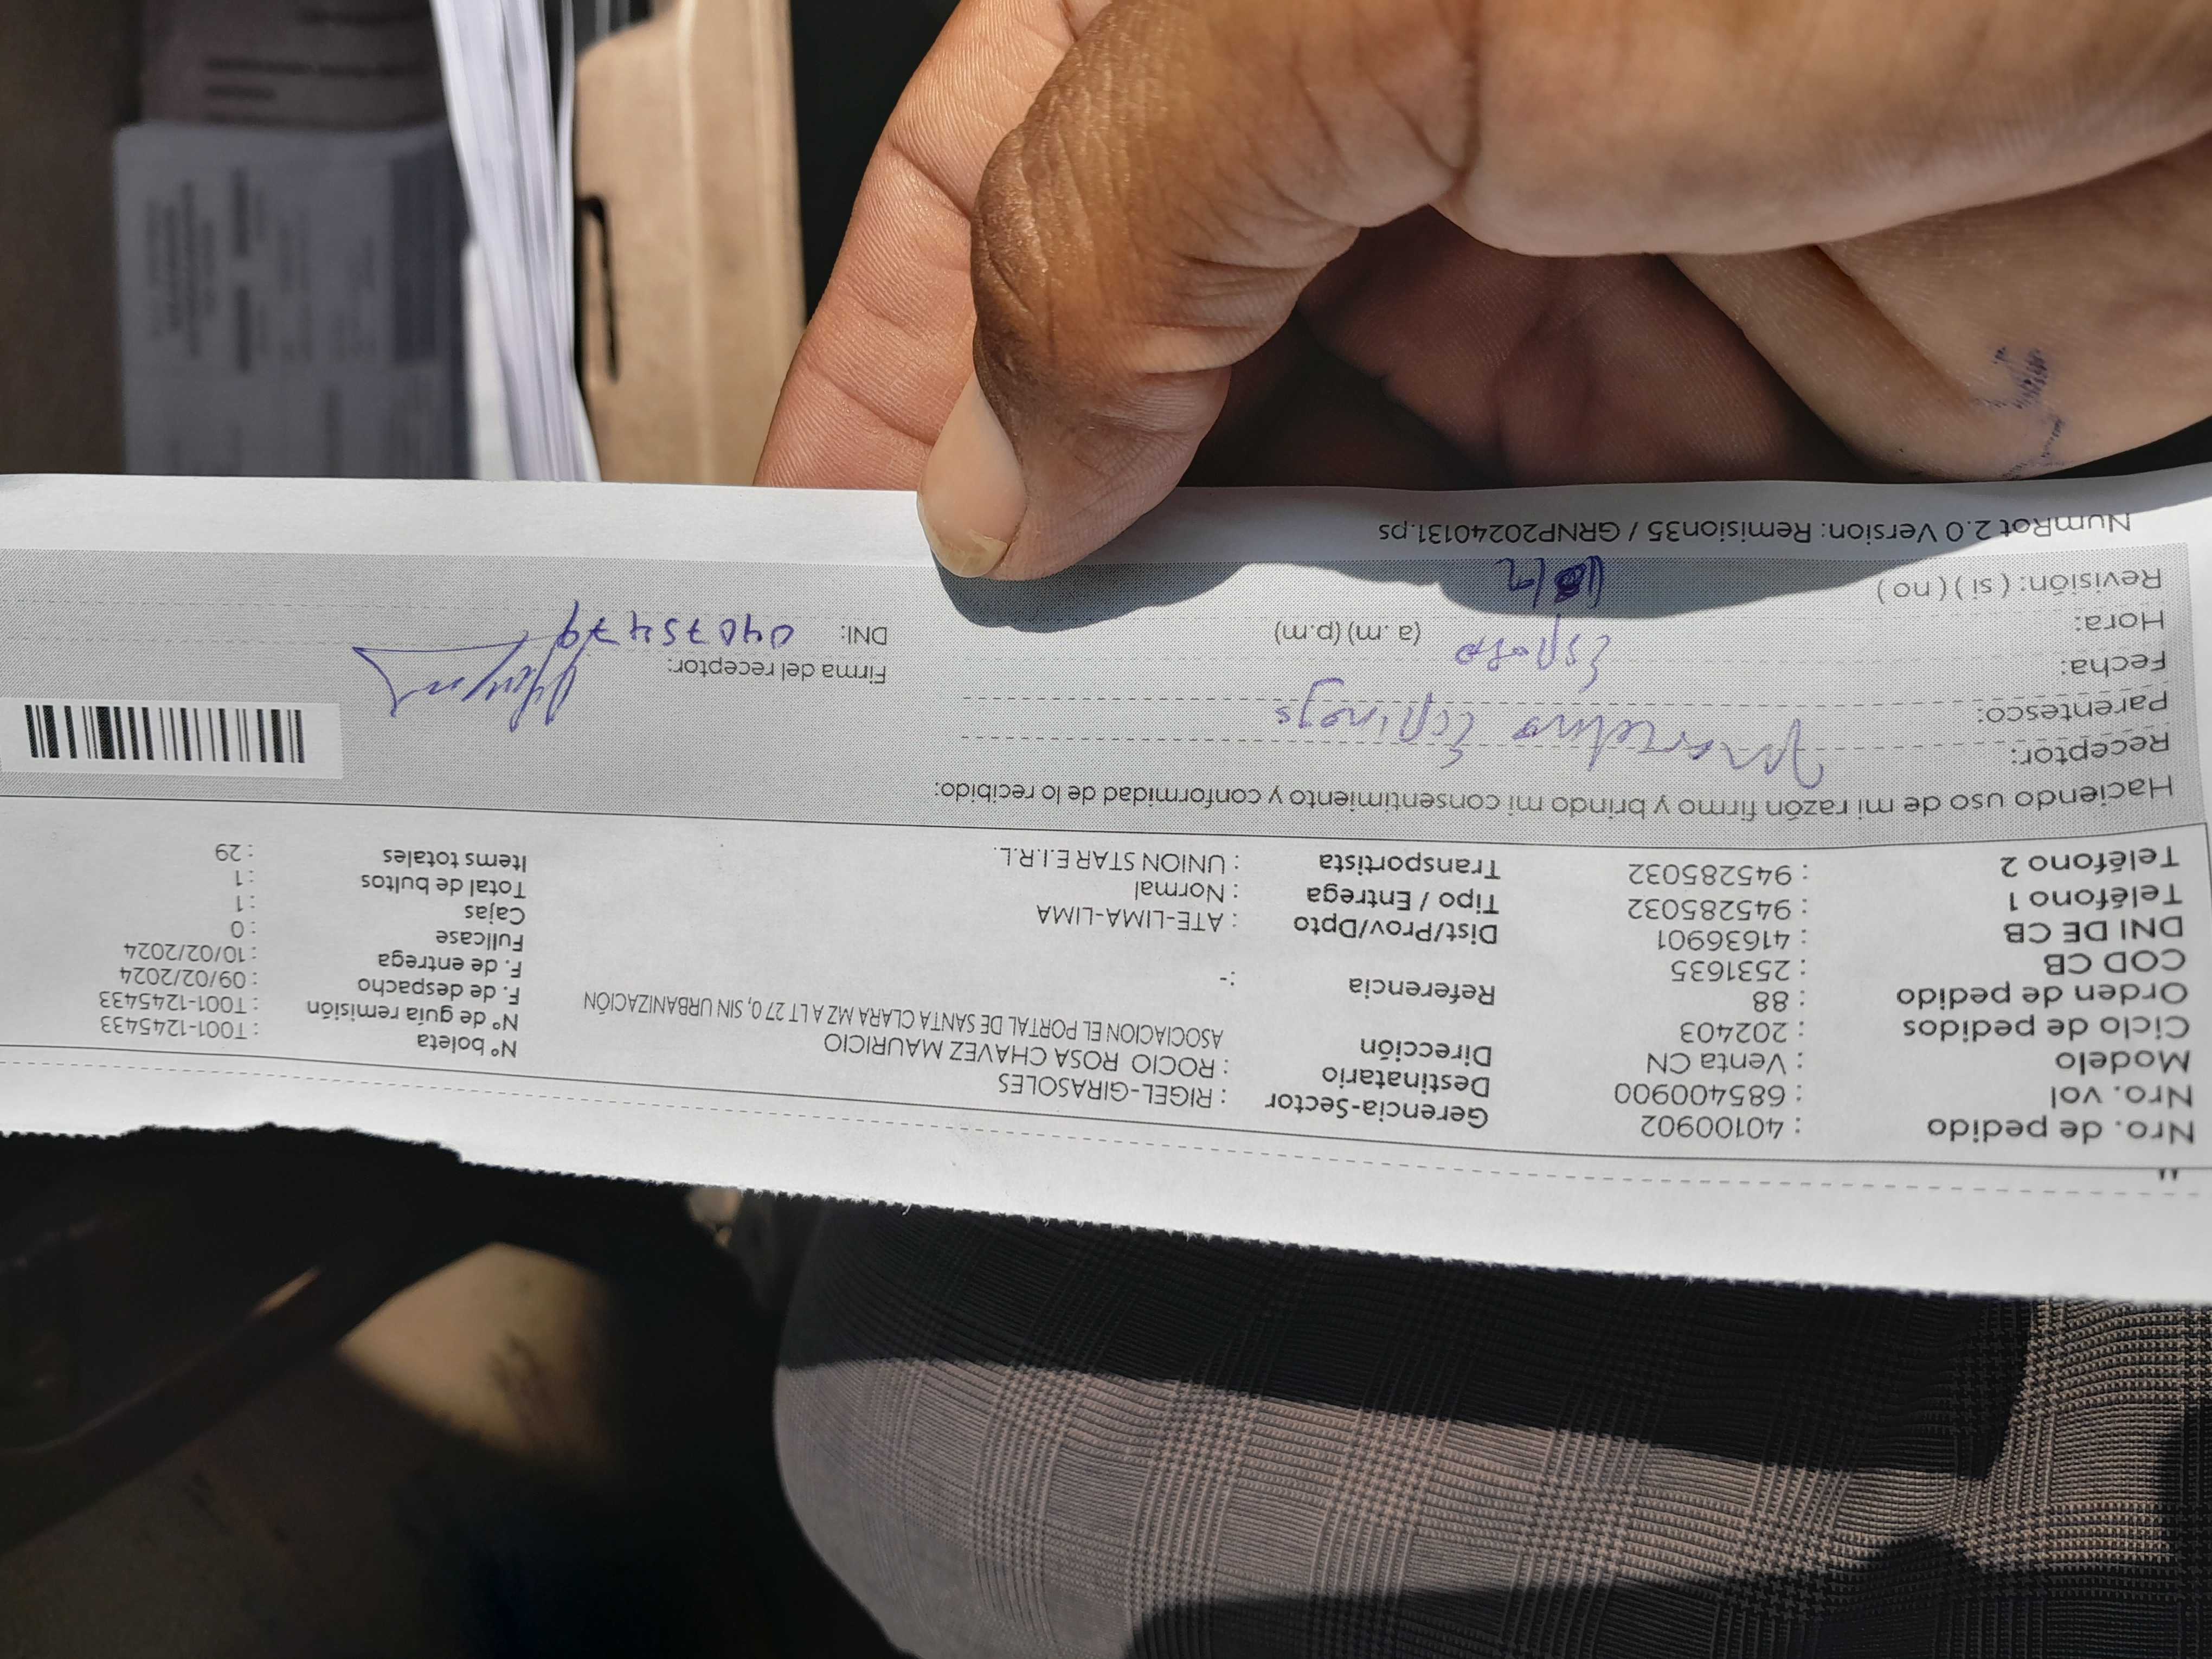 Nro. de pedido : 40100902 Gerencia-Sector : RIGEL-GIRASOLES Nº boleta : T001-1245433
Nro. vol : 685400900 Destinatario : ROCIO ROSA CHAVEZ MAURICIO Nº de guía remisión : T001-1245433
Modelo : Venta CN Dirección ASOCIACION EL PORTAL DE SANTA CLARA MZ A LT 27 0, SIN URBANIZACIÓN F. de despacho : 09/02/2024
Ciclo de pedidos : 202403 F. de entrega : 10/02/2024
Orden de pedido : 88 Referencia :- Fullcase : 0
COD CB : 2531635 Cajas : 1
DNI DE CB : 41636901 Dist/Prov/Dpto : ATE-LIMA-LIMA Total de bultos : 1
Teléfono 1 : 945285032 Tipo / Entrega : Normal Items totales : 29
Teléfono 2 : 945285032 Transportista : UNION STAR E.I.R.L.
Haciendo uso de mi razón firmo y brindo mi consentimiento y conformidad de lo recibido:
Receptor: Marcelino Espinoza
Parentesco: Esposo
Fecha: 10/2 Firma del receptor:
Hora: (a.m) (p.m) DNI: 040754479
Revisión: ( si ) ( no )
NumRot 2.0 Version: Remision35 / GRNP20240131.ps